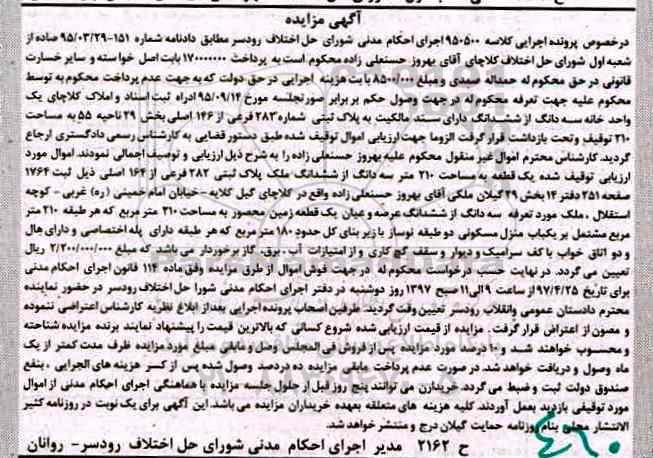 آگهی مزایده
درخصوص پرونده اجرایی کلاسه ۹۵۰۵۰۰ اجرای احکام مدنی شورای حل اختلاف رودسر مطابق دادنامه شماره ۱۵۱-۹۵/۰۳/۲۹ صادره از
شعبه اول شورای حل اختلاف کلاچای آقای بهروز حسنعلی زاده محکوم است به پرداخت ۱۷۰۰۰۰۰۰۰ بابت اصل خواسته و سایر خسارت
قانونی در حق محکوم له حمداله صمدی و مبلغ ۸۵۰۰/۰۰۰ بابت هزینه اجرایی در حق دولت که به جهت عدم پرداخت محکوم به توسط
محکوم علیه جهت تعرفه محکوم له در جهت وصول حکم بر برابر صورتجلسه مورخ ۹۵/۰۹/۱۴ اداره ثبت اسناد و املاک کلاچای یک
واحد خانه سه دانگ از ششدانگ دارای سند مالکیت به پلاک ثبتی شماره ۲۸۳ فرعی از ۱۴۶ اصلی بخش ۲۹ ناحیه ۵۵ به مساحت
۲۱۰ توقیف و تحت بازداشت قرار گرفت الزوما جهت ارزیابی اموال توقیف شده طبق دستور قضایی به کارشناس رسمی دادگستری ارجاع
گردید. کارشناس محترم اموال غیر منقول محکوم علیه بهروز حسنعلی زاده را به شرح ذیل ارزیابی و توصیف اجمالی نمودند. اموال مورد
ارزیابی توقیف شده یک قطعه به مساحت ۲۱۰ متر سه دانگ از ششدانگ ملک پلاک ثبتی ۲۸۲ فرعی از ۱۶۴ اصلی ذیل ثبت ۱۷۶۴
صفحه ۲۵۱ دفتر ۱۴ بخش ۲۹ گیلان ملکی آقای بهروز حسنعلی زاده واقع در کلاچای گیل کلایه -خیابان امام خمینی (ره) غربی - کوچه
استقلال ، ملک مورد تعرفه سه دانگ از ششدانگ عرصه و اعیان یک قطعه زمین محصور به مساحت ۲۱۰ متر مربع که هر طبقه ۲۱۰ متر
مربع مشتمل بر یکباب منزل مسکونی دو طبقه نوساز با زیر بنای کل حدود ۱۸۰ متر مربع که هر طبقه دارای پله اختصاصی و دارای هال
و دو اتاق خواب با کف سرامیک و دیوار و سقف گچ کاری و از امتیازات آب، برق، گاز برخوردار می باشد که مبلغ ۲/۲۰۰/۰۰۰/۰۰۰ ریال
تعیین می گردد. در نهایت حسب درخواست محکوم له در جهت فروش اموال از طرق مزایده وفق ماده ۱۱۴ قانون اجرای احکام مدنی
برای تاریخ ۹۷/۴/۲۵ از ساعت ۹ الی ۱۱ صبح ۱۳۹۷ روز دوشنبه در دفتر اجرای احکام مدنی شورا حل اختلاف رودسر در حضور نماینده
محترم دادستان عمومی وانقلاب رودسر تعیین وقت گردید. طرفین اصحاب پرونده اجرایی بعد از ابلاغ نظریه کارشناس اعتراضی ننموده
و مصون از اعتراض قرار گرفت. مزایده از قیمت ارزیابی شده شروع کسانی که بالاترین قیمت را پیشنهاد نمایند برنده مزایده شناخته
و محسوب خواهند شد و ۱۰ درصد مورد مزایده پس از فروش فی المجلس وصل و مابقی مبلغ مورد مزایده ظرف مدت کمتر از یک
ماه وصول و دریافت خواهد شد. در صورت عدم پرداخت مابقی مزایده ده درصد وصول شده پس از کسر هزینه های الجرایی ، بنفع
صندوق دولت ثبت و ضبط می گردد. خریدارن می توانند پنج روز قبل از حلول جلسه مزایده با هماهنگی اجرای احکام مدنی از اموال
مورد توقیفی بازدید بعمل آوردند. کلیه هزینه های متعلقه بعهده خریداران مزایده می باشد. این آگهی برای یک نوبت در روزنامه کثیر
الانتشار محلی بنام روزنامه حمایت گیلان درج و منتشر خواهد شد.
ح ۲۱۶۲ مدیر اجرای احکام مدنی شورای حل اختلاف رودسر- روانان